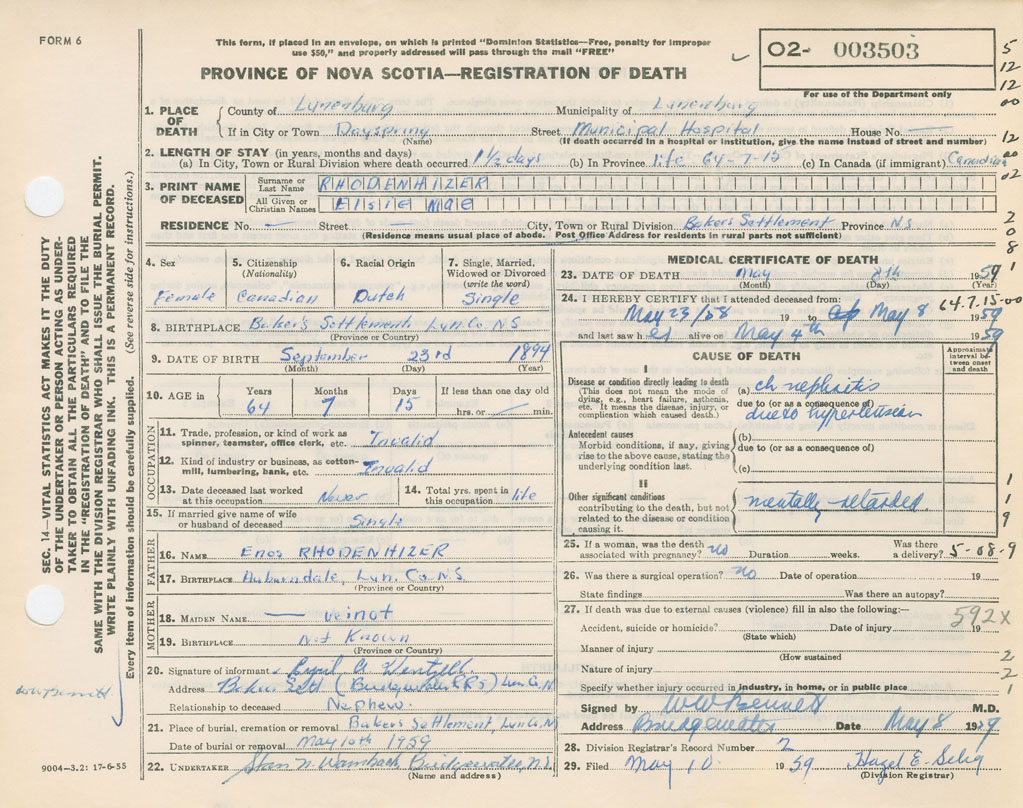 FORM 6
This form, if placed in an envelope, on which is printed "Dominion Statistics—Free, penalty for improper
use $50," and properly addressed will pass through the mail "FREE"
PROVINCE OF NOVA SCOTIA—REGISTRATION OF DEATH
02- 003503
For use of the Department only
5
12
12
00
12
00
02
2
0
8
1
SEC. 14—VITAL STATISTICS ACT MAKES IT THE DUTY
OF THE UNDERTAKER OR PERSON ACTING AS UNDER-
TAKER TO OBTAIN ALL THE PARTICULARS REQUIRED
IN THE "REGISTRATION OF DEATH" AND TO FILE THE
SAME WITH THE DIVISION REGISTRAR WHO SHALL ISSUE THE BURIAL PERMIT.
WRITE PLAINLY WITH UNFADING INK. THIS IS A PERMANENT RECORD.
Every item of information should be carefully supplied. (See reverse side for instructions.)
1. PLACE OF DEATH
County of Lunenburg Municipality of Lunenburg
If in City or Town Dayspring Street Municipal Hospital House No. —
(Name) (If death occurred in a hospital or institution, give the name instead of street and number)
2. LENGTH OF STAY (in years, months and days)
(a) In City, Town or Rural Division where death occurred 1½ days (b) In Province life 64-7-15 (c) In Canada (if immigrant) Canadian
3. PRINT NAME OF DECEASED
Surname or Last Name RHODENHIZER
All Given or Christian Names Elsie Mae
RESIDENCE No. — Street — City, Town or Rural Division Bakers Settlement Province NS
(Residence means usual place of abode. Post Office Address for residents in rural parts not sufficient)
4. Sex 5. Citizenship 6. Racial Origin 7. Single, Married,
(Nationality) Widowed or Divorced
(write the word)
Female Canadian Dutch Single
8. BIRTHPLACE Bakers Settlement Lun. Co. N.S
(Province or Country)
9. DATE OF BIRTH September 23rd 1894
(Month) (Day) (Year)
10. AGE in Years Months Days If less than one day old
64 7 15 hrs. or — min.
OCCUPATION
11. Trade, profession, or kind of work as
spinner, teamster, office clerk, etc. Invalid
12. Kind of industry or business, as cotton-
mill, lumbering, bank, etc. Invalid
13. Date deceased last worked
at this occupation Never
14. Total yrs. spent in
this occupation life
15. If married give name of wife
or husband of deceased Single
FATHER
16. NAME Enos RHODENHIZER
17. BIRTHPLACE Auburndale, Lun. Co. N.S
(Province or Country)
MOTHER
18. MAIDEN NAME — Veinot
19. BIRTHPLACE Not Known
(Province or Country)
20. Signature of informant Cyril A Wentzell
Address Baker Sett (Bridgewater RR5) Lun Co. N
Relationship to deceased Nephew.
21. Place of burial, cremation or removal Bakers Settlement, Lun Co, NS
Date of burial or removal May 10th 1959
22. UNDERTAKER Stan N. Wambach Bridgewater, N.S.
(Name and address)
9004-3.2: 17-6-55
MEDICAL CERTIFICATE OF DEATH
23. DATE OF DEATH May 8th 1959
(Month) (Day) (Year)
24. I HEREBY CERTIFY that I attended deceased from: 64.7.15-00
May 23/58 19 to May 8 1959
and last saw her alive on May 4th 1959
CAUSE OF DEATH
Approximate interval between onset and death
I
Disease or condition directly leading to death
(This does not mean the mode of
dying, e.g., heart failure, asthenia,
etc. It means the disease, injury, or
complication which caused death.)
(a) ch nephritis
due to (or as a consequence of)
due to hypertension
Antecedent causes
Morbid conditions, if any, giving
rise to the above cause, stating the
underlying condition last.
(b)
due to (or as a consequence of)
(c)
II
Other significant conditions
contributing to the death, but not
related to the disease or condition
causing it.
mentally retarded
1
1
9
25. If a woman, was the death
associated with pregnancy? no Duration weeks. Was there
a delivery? 5-08-9
26. Was there a surgical operation? no Date of operation 19
State findings Was there an autopsy?
27. If death was due to external causes (violence) fill in also the following:—
592 x
Accident, suicide or homicide? Date of injury 19
(State which)
Manner of injury
(How sustained
Nature of injury
Specify whether injury occurred in industry, in home, or in public place
2
2
1
Signed by WW Bennett M.D.
Address Bridgewater Date May 8 1959
28. Division Registrar's Record Number 2
29. Filed May 10 1959 Hazel E. Selig
(Division Registrar)